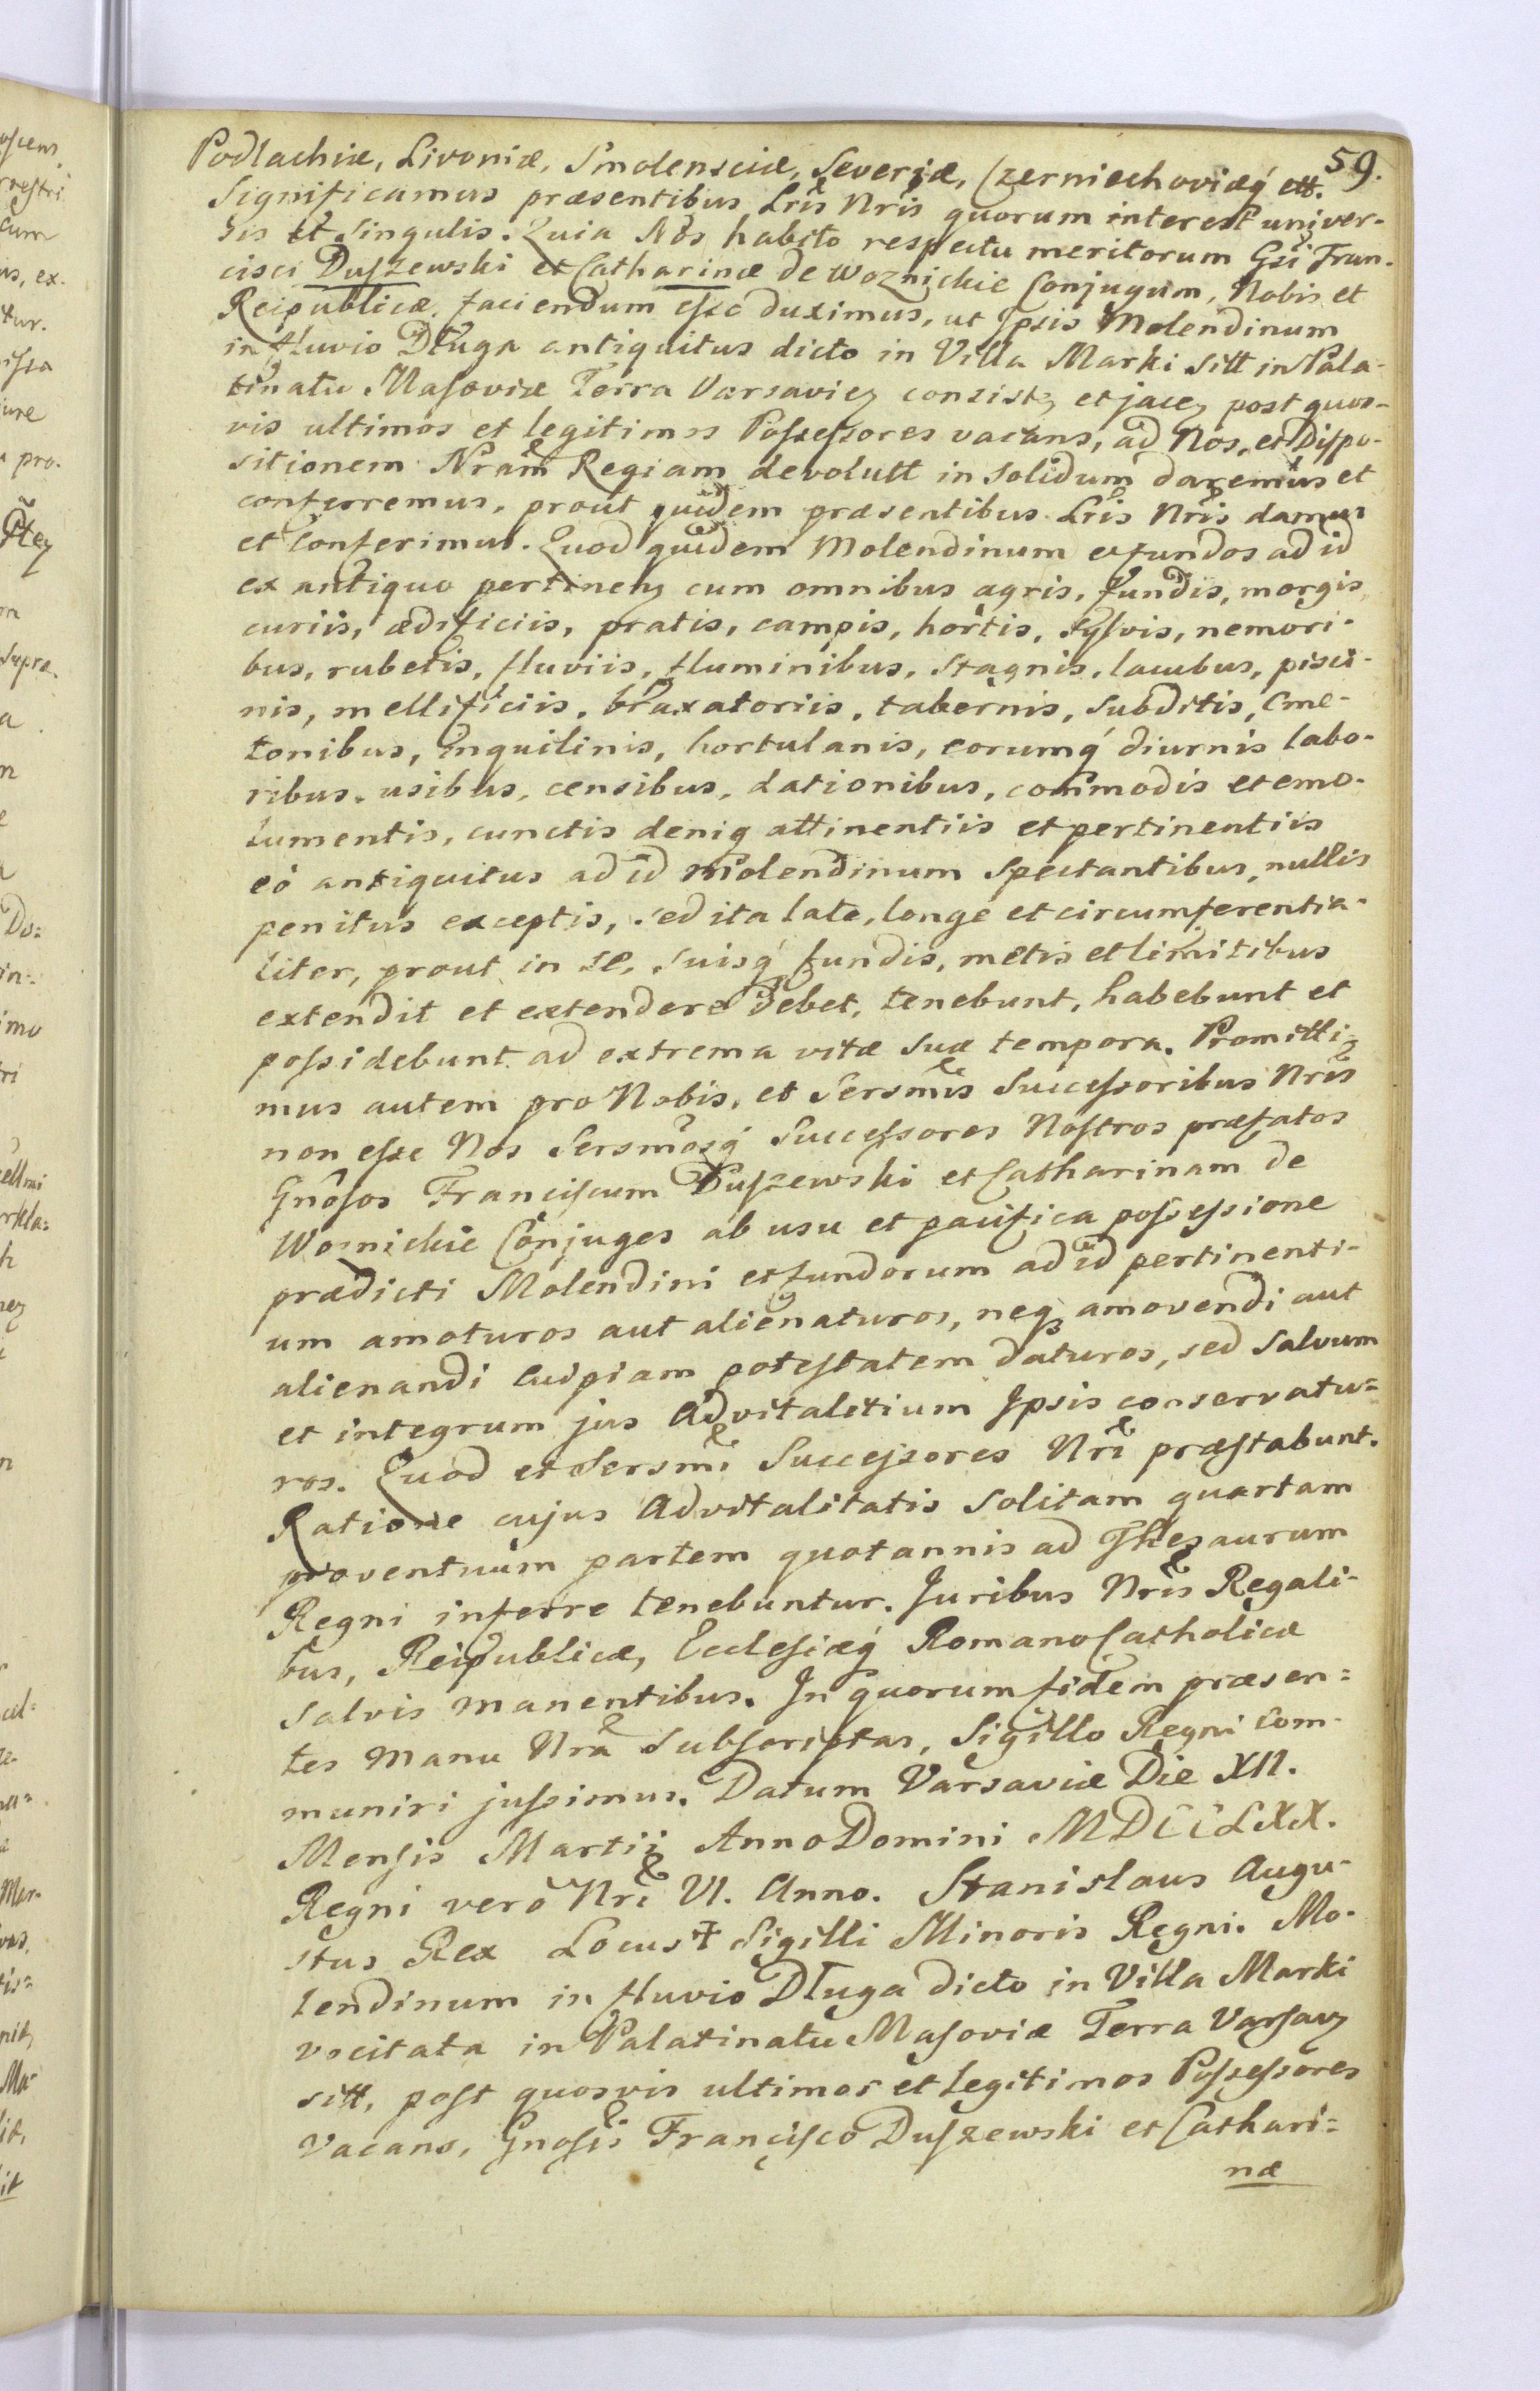 59.
Podlachiæ, Livoniæ, Smolensciæ, Severiæ, Czerniechoviæq́ ett.
Significamus præsentibus Lris Nris quorum interest univer-
sis et Singulis. Quia Nos habito respectu meritorum Gsi Fran-
cisci Duszewski et Catharinæ de Woznickie Conjugum, Nobis et
Reipublicæ, faciendum esse duximus, ut Ipsis Molendinum
in fluvio Długa antiquitus dicto in Villa Marki sitt in Pala-
tinatu Masoviæ Terra Varsavieȝ consistȝ et jaceȝ post quos-
vis ultimos et legitimos Possessores vacans, ad Nos, et Dispo-
sitionem Nram Regiam devolutt in solidum daremus et
conferremus, prout quidem præsentibus Lris Nris damus
et Conferimus. Quod quidem Molendinum et fundos ad id
ex antiquo pertineȝ cum omnibus agris, fundis, morgis,
curiis, ædificiis, pratis, campis, hortis, sylvis, nemori-
bus, rubetis, fluviis, fluminibus, stagnis, lacubus, pisci-
nis, mellificiis, braxatoriis, tabernis, subditis, Cme-
tonibus, Inquilinis, hortulanis, eorumq́ diurnis labo-
ribus, usibus, censibus, dationibus, commodis et emo-
lumentis, cunctis deniq attinentiis et pertinentiis
eò antiquitus ad id Molendinum Spectantibus, nullis
penitus exceptis, sed ita late, longe et circumferentia-
liter, prout in se, suisq́ fundis, metis et limitibus
extendit et extendere debet, tenebunt, habebunt et
possidebunt ad extrema vitæ suæ tempora. Promitti-
mus autem pro Nobis, et Sersmis Successoribus Nris
non esse Nos Sersmosq́ Successores Nostros præfatos
Gnosos Franciscum Duszewski et Catharinam de
Woznickie Conjuges ab usu et pacifica possessione
prædicti Molendini et fundorum ad id pertinenti-
um amoturos aut alienaturos, neqꝫ amovendi aut
alienandi cuipiam potestatem daturos, sed Salvum
et integrum jus Advitalitium Ipsis conservatu-
ros. Quod et Sersmi Successores Nri præstabunt.
Ratione cujus Advitalitatis solitam quartam
proventuum partem quotannis ad Thesaurum
Regni inferre tenebuntur. Juribus Nris Regali-
bus, Reipublicæ, Ecclesiæq́ Romano Catholicæ
salvis manentibus. In quorum fidem præsen-
tes manu Nra Subscriptas, Sigillo Regni com-
muniri jussimus. Datum Varsaviæ Die XII.
Mensis Martii Anno Domini MDCCLXX.
Regni vero Nri VI. Anno. Stanislaus Augu-
stus Rex Locus † Sigilli Minoris Regni. Mo-
lendinum in fluvio Długa dicto in Villa Marki
vocitata in Palatinatu Masoviæ Terra Varsavȝ
sitt, post quosvis ultimos et legitimos Possessores
vacans, Gnosis Francisco Duszewski et Cathari-
næ